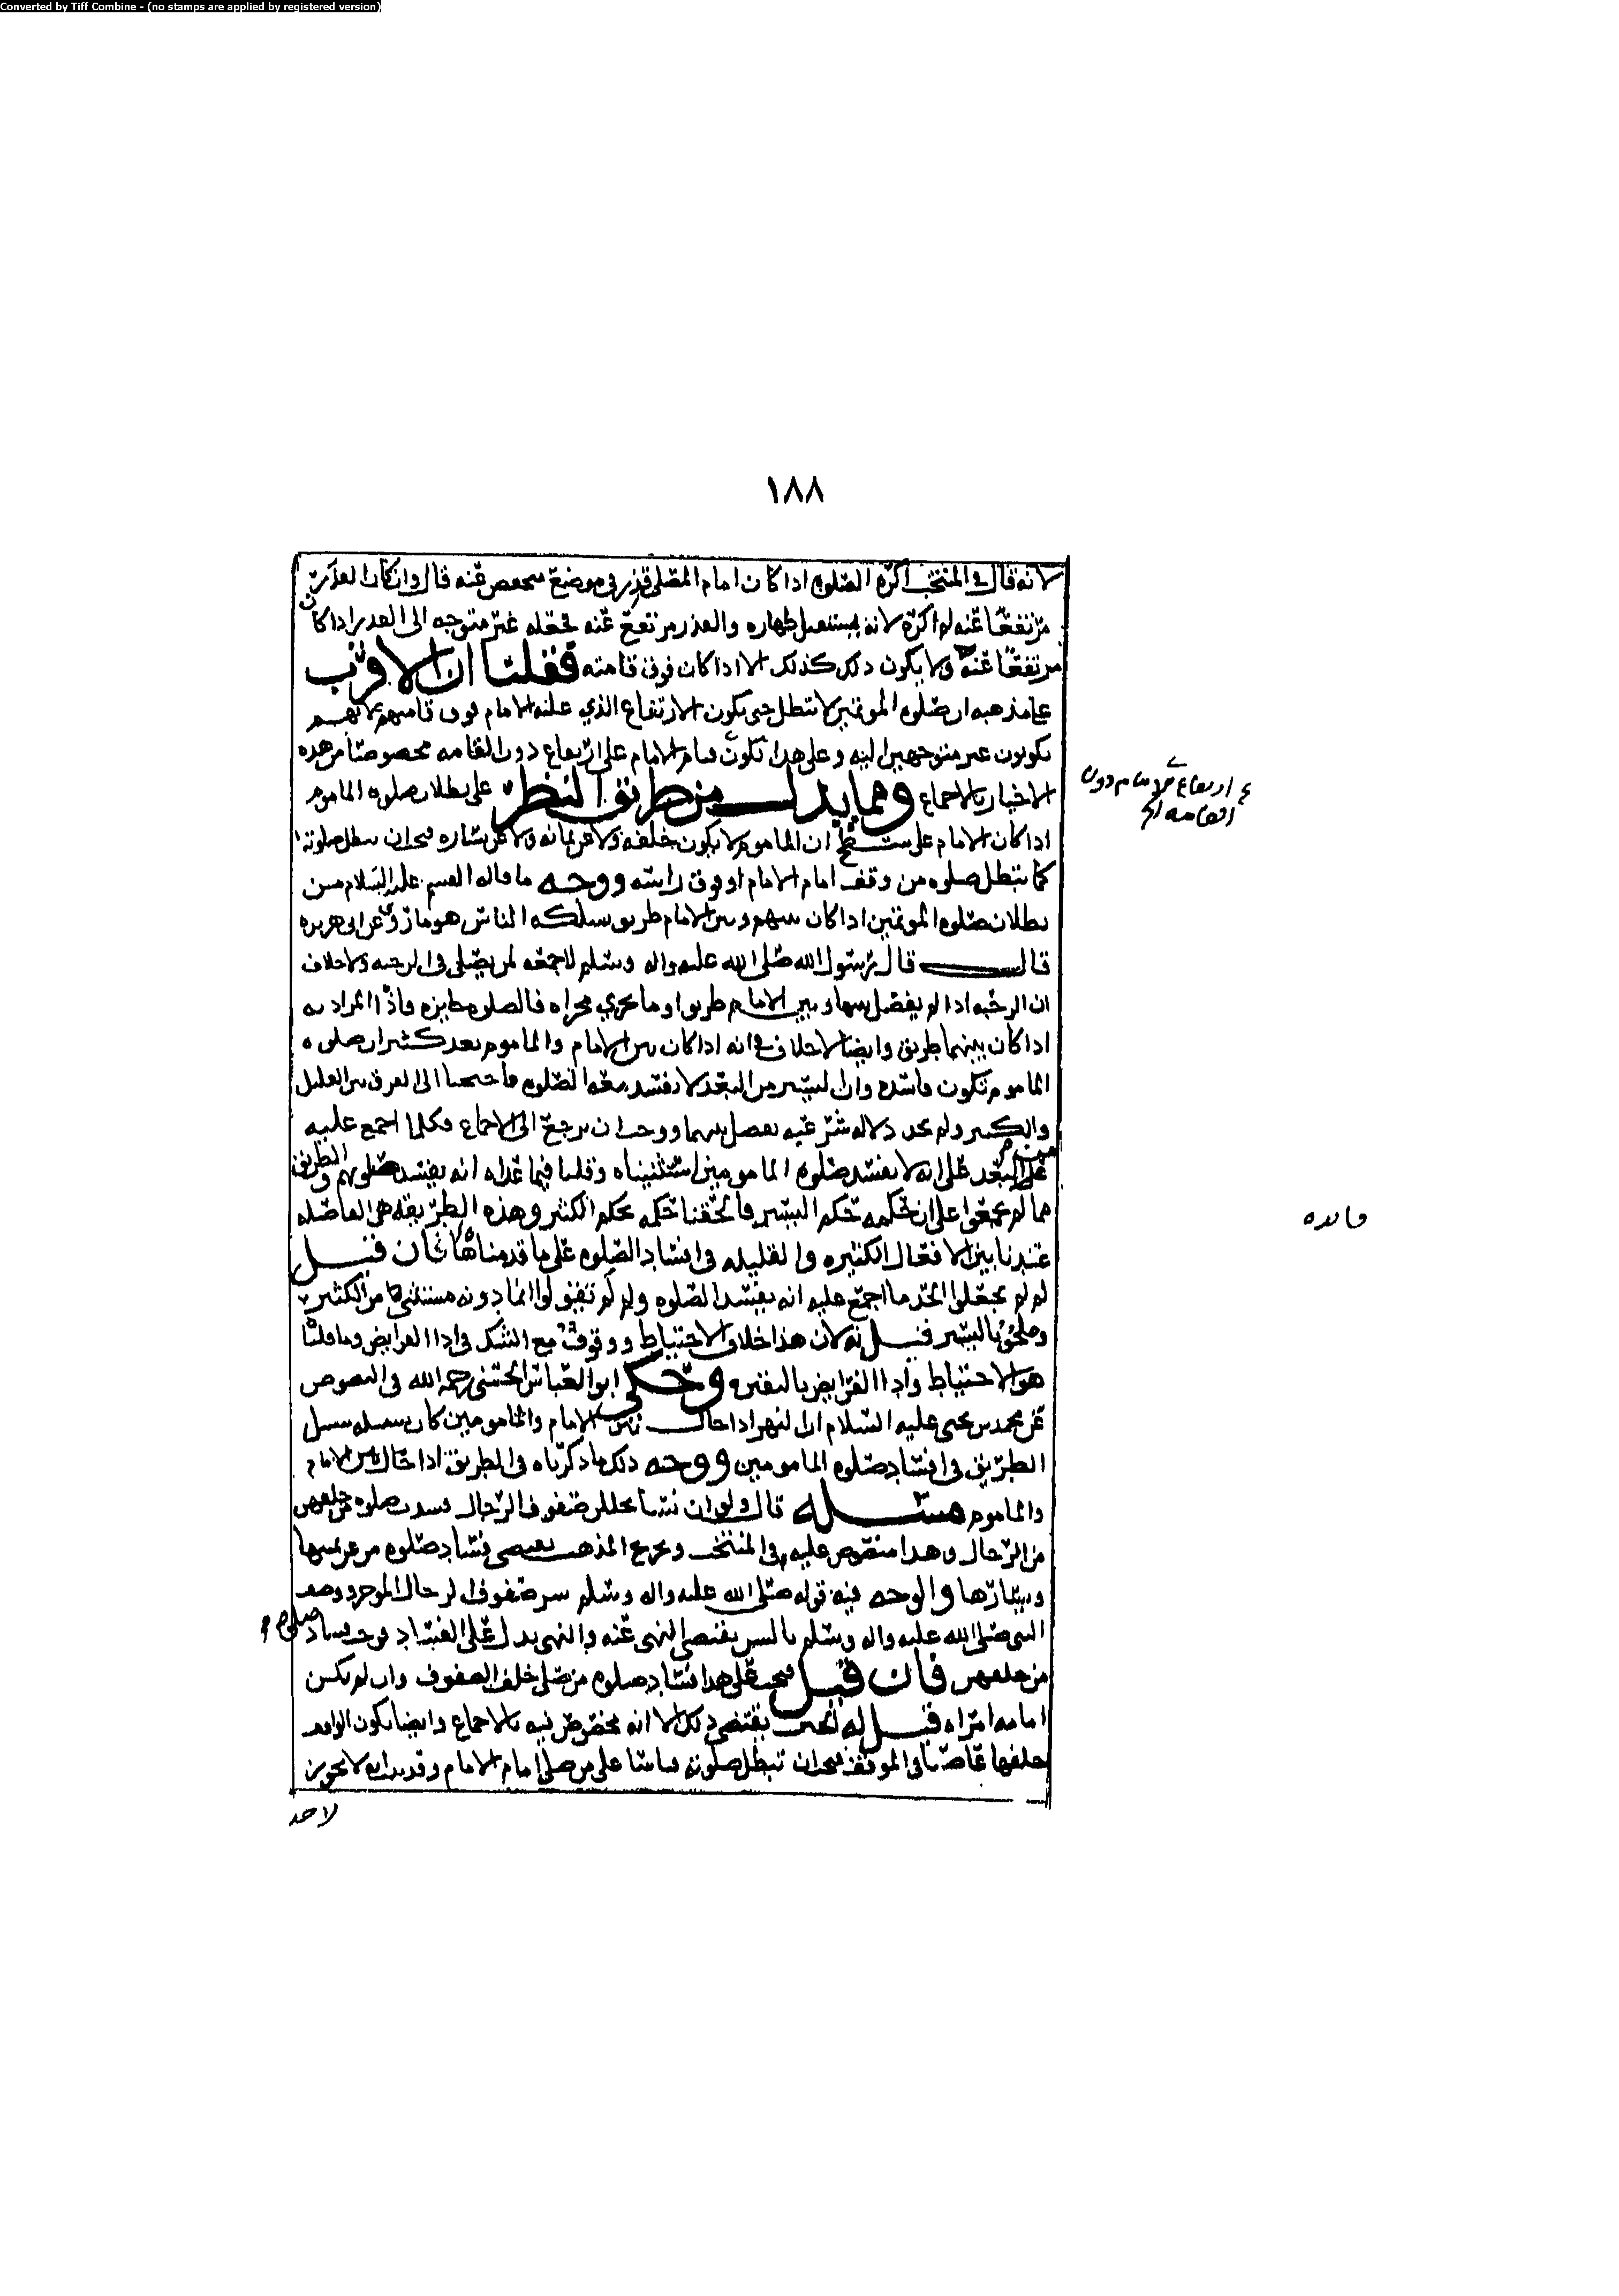 Converted by Tiff Combine - (no stamps are applied by registered version)
١٨٨
لانه قال في المنتخب اكره الصلوه اذا كان امام المصلي قذر في موضع منخفض عنه قال وان كان العذر
مرتفعًا عنه لم اكره لانه يستعمل طهاره والقذر مرتفع عنه فجعله غير متوجه الى القذر اذا كان
مرتفعًا عنه ولا يكون ذلك كذلك الا اذا كان فوق قامته فقلنا ان الاقرب
على مذهبه ان صلوه المؤتمين لا تبطل حتى يكون الارتفاع الذي عليه الامام فوق قامتهم لانهم
يكونون غير متوجهين اليه وعلى هذا تكون قيام الامام على ارتفاع دون القامه مخصوصًا من هذه
الاخبار بالاجماع ومما يدل من طريق النظر على بطلان صلوه الماموم
اذا كان الامام على سطح ان الماموم لا يكون خلفه ولا عن يمانه ولا عن يساره فيجب ان تبطل صلوته
كما تبطل صلوه من وقف امام الامام او فوق راسه ووجه ما قاله القسم عليه السلام من
بطلان صلوه المؤتمين اذا كان بينهم وبين الامام طريق يسلكه الناس هو ما روي عن ابي هريره
قال قال رسول الله صلى الله عليه واله وسلم لا جمعه لمن يصلي في الرحبه ولا خلاف
ان الرحبه اذا لم يفصل بينها وبين الامام طريق او ما يجري مجراه فالصلوه جايزه فاذًا المراد به
اذا كان بينهما طريق وايضا لا خلاف في انه اذا كان بين الامام والماموم بعد كثير ان صلوه
الماموم تكون فاسده وان اليسير من البعد لا تفسد معه الصلوه فاحتجنا الى الفرق بين القليل
والكثير ولم نجد دلاله شرعيه تفصل بينهما ووجب ان نرجع الى الاجماع فكلما اجمع عليه
من البعد على انه لا يفسد صلوه المامومين استثنيناه وقلنا فيما عداه انه يفسد صلوتهم والطريق
مما لم يجمعوا على ان حكمه حكم اليسير فالحقنا حكمه بحكم الكثير وهذه الطريقه هي الفاصله
عندنا بين الافعال الكثيره والقليله في افساد الصلوه على ما قدمناها فان قيل
لم لم تجعلوا الحد ما اجمع عليه انه يفسد الصلوه ولم لم تقولوا انما دونه مستثنى من الكثير
وملحق باليسير قيل له لان هذا خلاف الاحتياط ووقوف مع الشك في ادا الفرايض وما قلنا
هو الاحتياط وادا الفرايض باليقين وحكى ابو العباس الحسني رحمه الله في النصوص
عن محمد بن يحيى عليه السلام ان النهر اذا حال بين الامام والمامومين كان سبيله سبيل
الطريق في افساد صلوه المامومين ووجه ذلك ما ذكرناه في الطريق اذا حال بين الامام
والماموم مسئله قال ولو ان نسآ تخللن صفوف الرجال فسدت صلوه من خلفهن
من الرجال وهذا منصوص عليه في المنتخب وتخريج المذهب يقتضي فساد صلوه من عن يمينها
ويسارها والوجه فيه قوله صلى الله عليه واله وسلم شر صفوف الرجال المؤخر ووصف
النبي صلى الله عليه واله وسلم بالشر يقتضي النهي عنه والنهي يدل على الفساد فوجب فساد صلوه
من خلفهن فان قيل فيجب على هذا فساد صلوه من صلى خلف الصفوف وان لم يكن
امامه امراه قيل له الخبر يقتضي ذلك الا انه مخصوص فيه بالاجماع وايضا يكون الواقف
خلفها عاصيا في الموقف فيجب ان تبطل صلوته قياسًا على من صلى امام الامام وقد بينا انه لا يجوز
لاحد
ارتفاع الامام دون
القامه
فائده